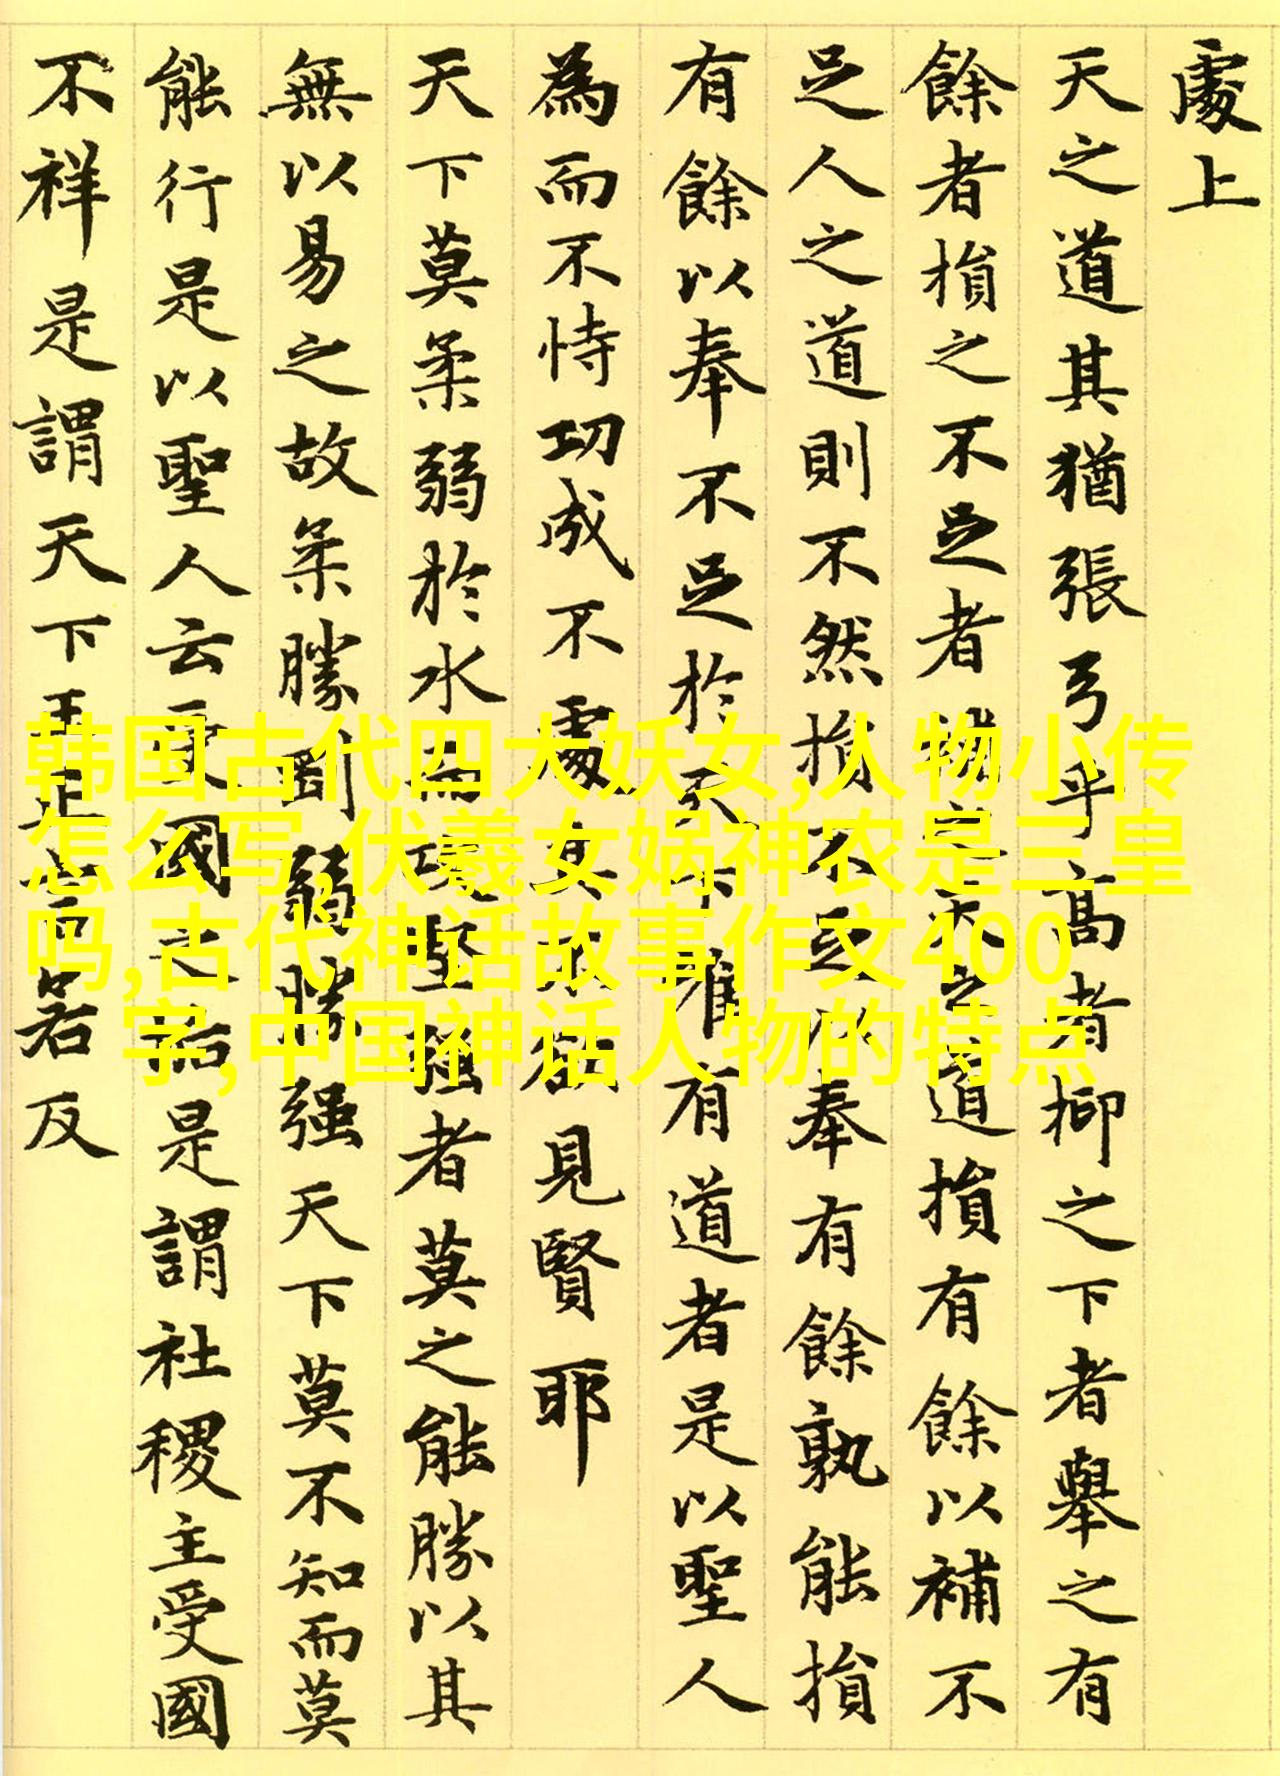 處上
天之道其猶張弓乎高者抑之下者舉之有
餘者損之不足者補之天之道損有餘以補不
足人之道則不然損不足以奉有餘孰能損
有餘以奉不足於天下唯有道者是以聖人
為而不恃功成不處其不欲見賢耶
天下莫柔弱於水而攻堅强者莫之能勝以其
無以易之故柔勝剛弱勝强天下莫不知而莫
能行是以聖人云受國之垢是謂社稷主受國
不祥是謂天下王正言若反
韩国古代四大妖女,人物小传
怎么写,伏羲女娲神农是三皇
吗,古代神话故事作文400
字,中国神话人物的特点